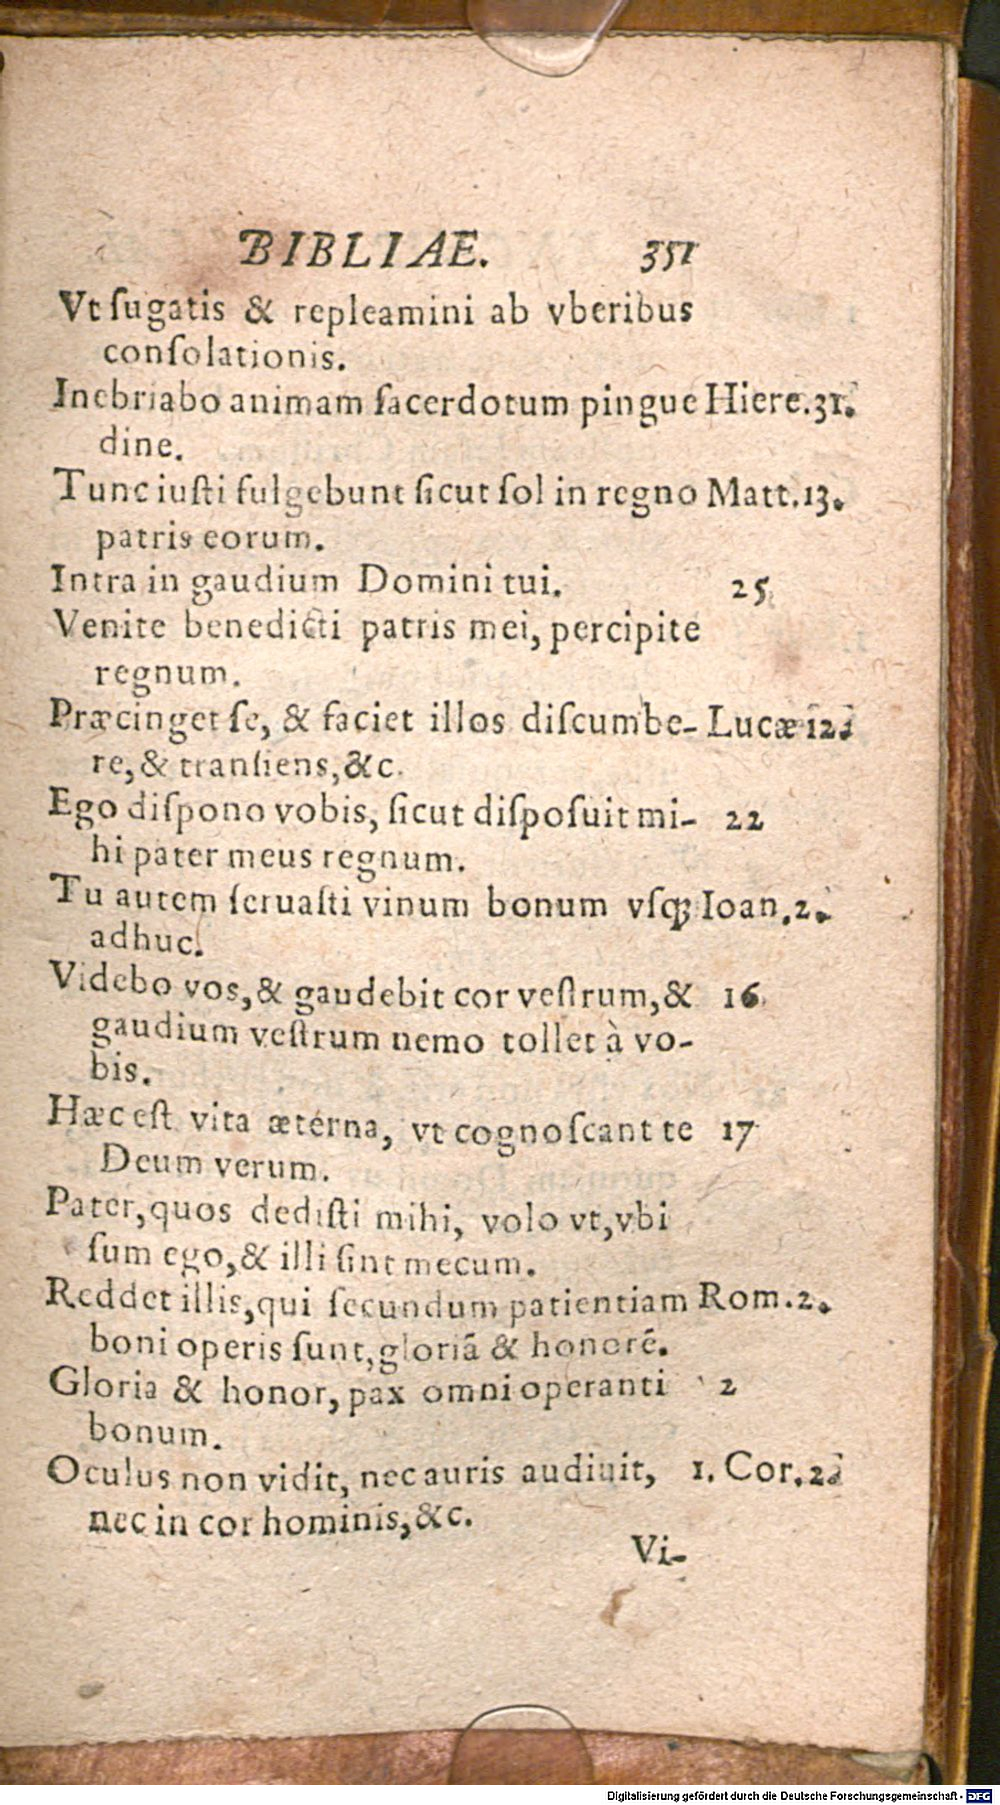 BIBLIAE. 351
Vt ſugatis & repleamini ab vberibus
conſolationis.
Inebriabo animam ſacerdotum pingue Hiere.31.
dine.
Tunc iuſti fulgebunt ſicut ſol in regno Matt.13.
patris eorum.
Intra in gaudium Domini tui. 25
Venite benedicti patris mei, percipite
regnum.
Præcinget ſe, & faciet illos diſcumbe- Lucæ 12.
re, & tranſiens, &c.
Ego diſpono vobis, ſicut diſpoſuit mi- 22
hi pater meus regnum.
Tu autem ſeruaſti vinum bonum vſq; Ioan.2.
adhuc.
Videbo vos, & gaudebit cor veſtrum, & 16
gaudium veſtrum nemo tollet à vo-
bis.
Hæc eſt vita æterna, vt cognoſcant te 17
Deum verum.
Pater, quos dediſti mihi, volo vt, vbi
ſum ego, & illi ſint mecum.
Reddet illis, qui ſecundum patientiam Rom.2.
boni operis ſunt, gloriā & honorē.
Gloria & honor, pax omni operanti 2
bonum.
Oculus non vidit, nec auris audiuit, 1. Cor.2.
nec in cor hominis, &c.
Vi-
Digitalisierung gefördert durch die Deutsche Forschungsgemeinschaft - DFG